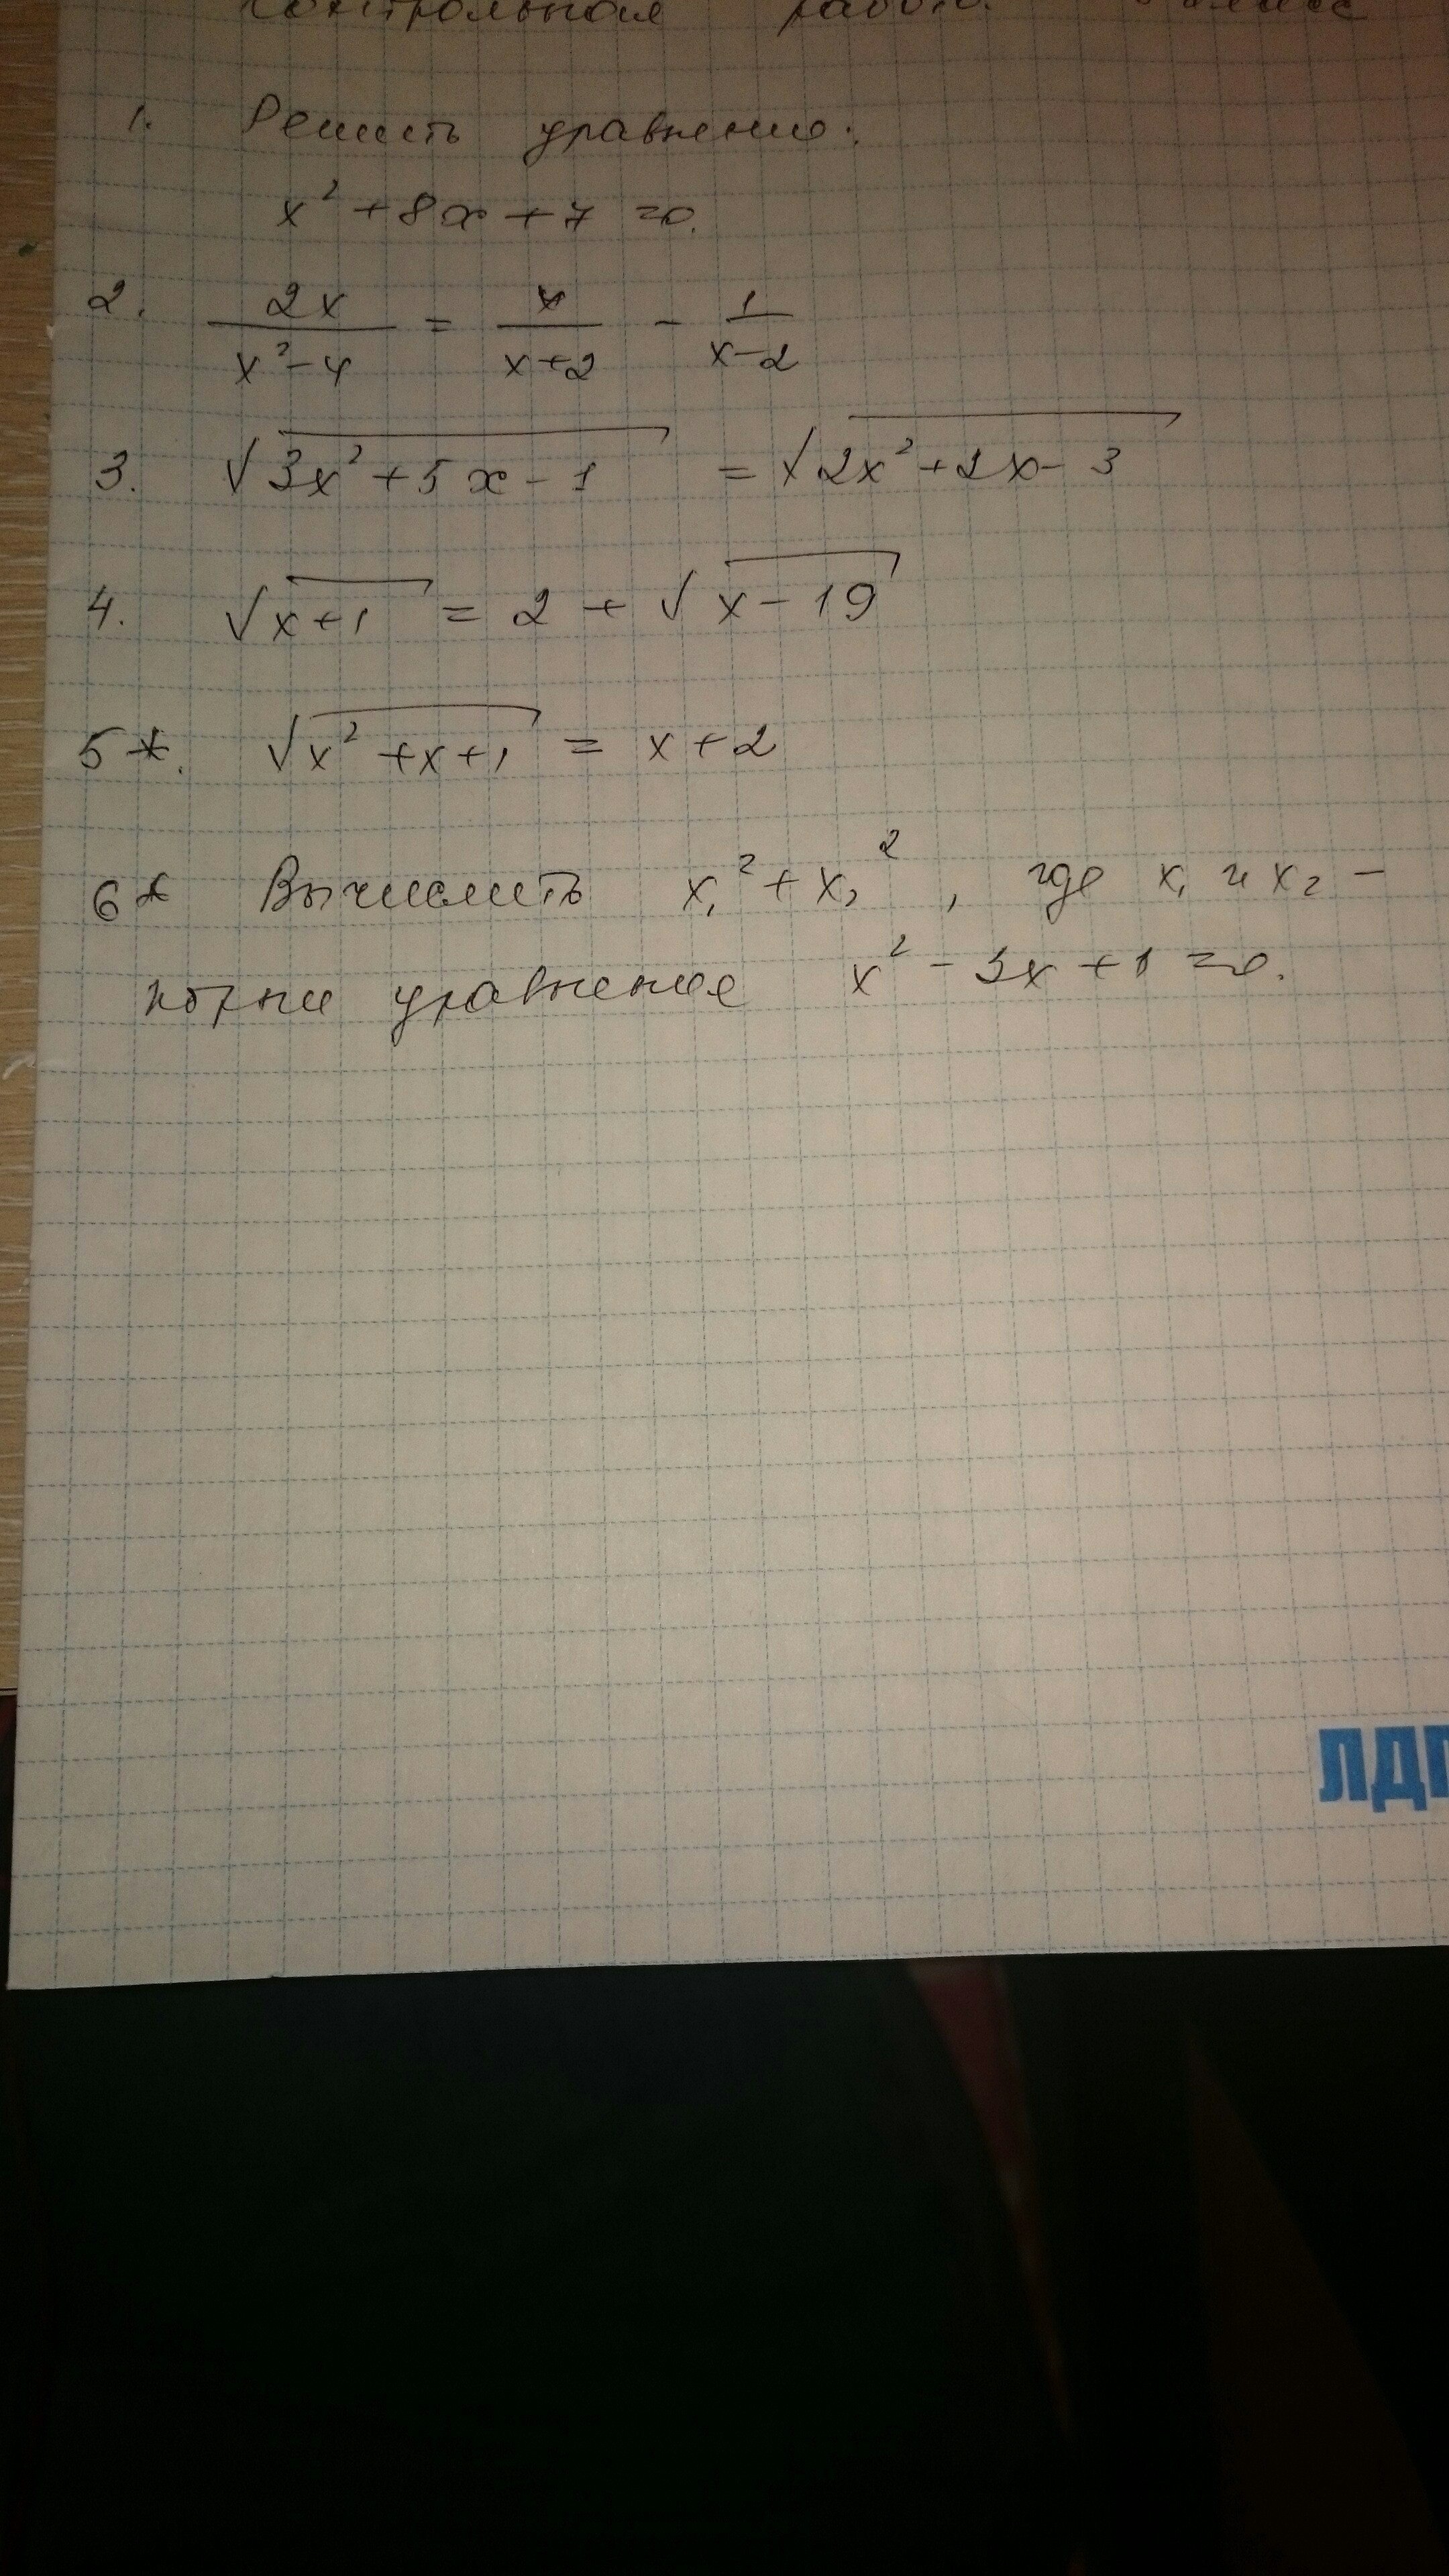 контрольная работа. 8 класс
1. Решить уравнение:
x² + 8x + 7 = 0.
2. 2x/(x² - 4) = x/(x + 2) - 1/(x - 2)
3. √(3x² + 5x - 1) = √(2x² + 2x - 3)
4. √(x + 1) = 2 + √(x - 19)
5*. √(x² + x + 1) = x + 2
6* Вычислить x₁² + x₂², где x₁ и x₂ -
корни уравнения x² - 3x + 1 = 0.
ЛДП